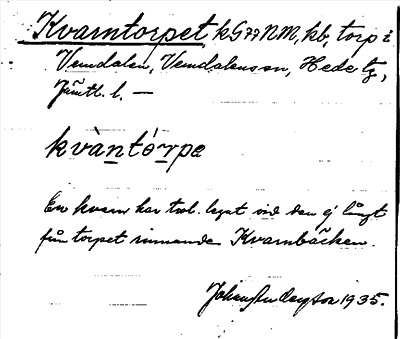 Kvarntorpet kG77NM, kb, torp i
Vemdalen, Vemdalens sn, Hede tg,
Jämtl. l. —
kvàntórpe
En kvarn har trol. legat vid den ej långt
från torpet rinnande Kvarnbäcken.
1935.